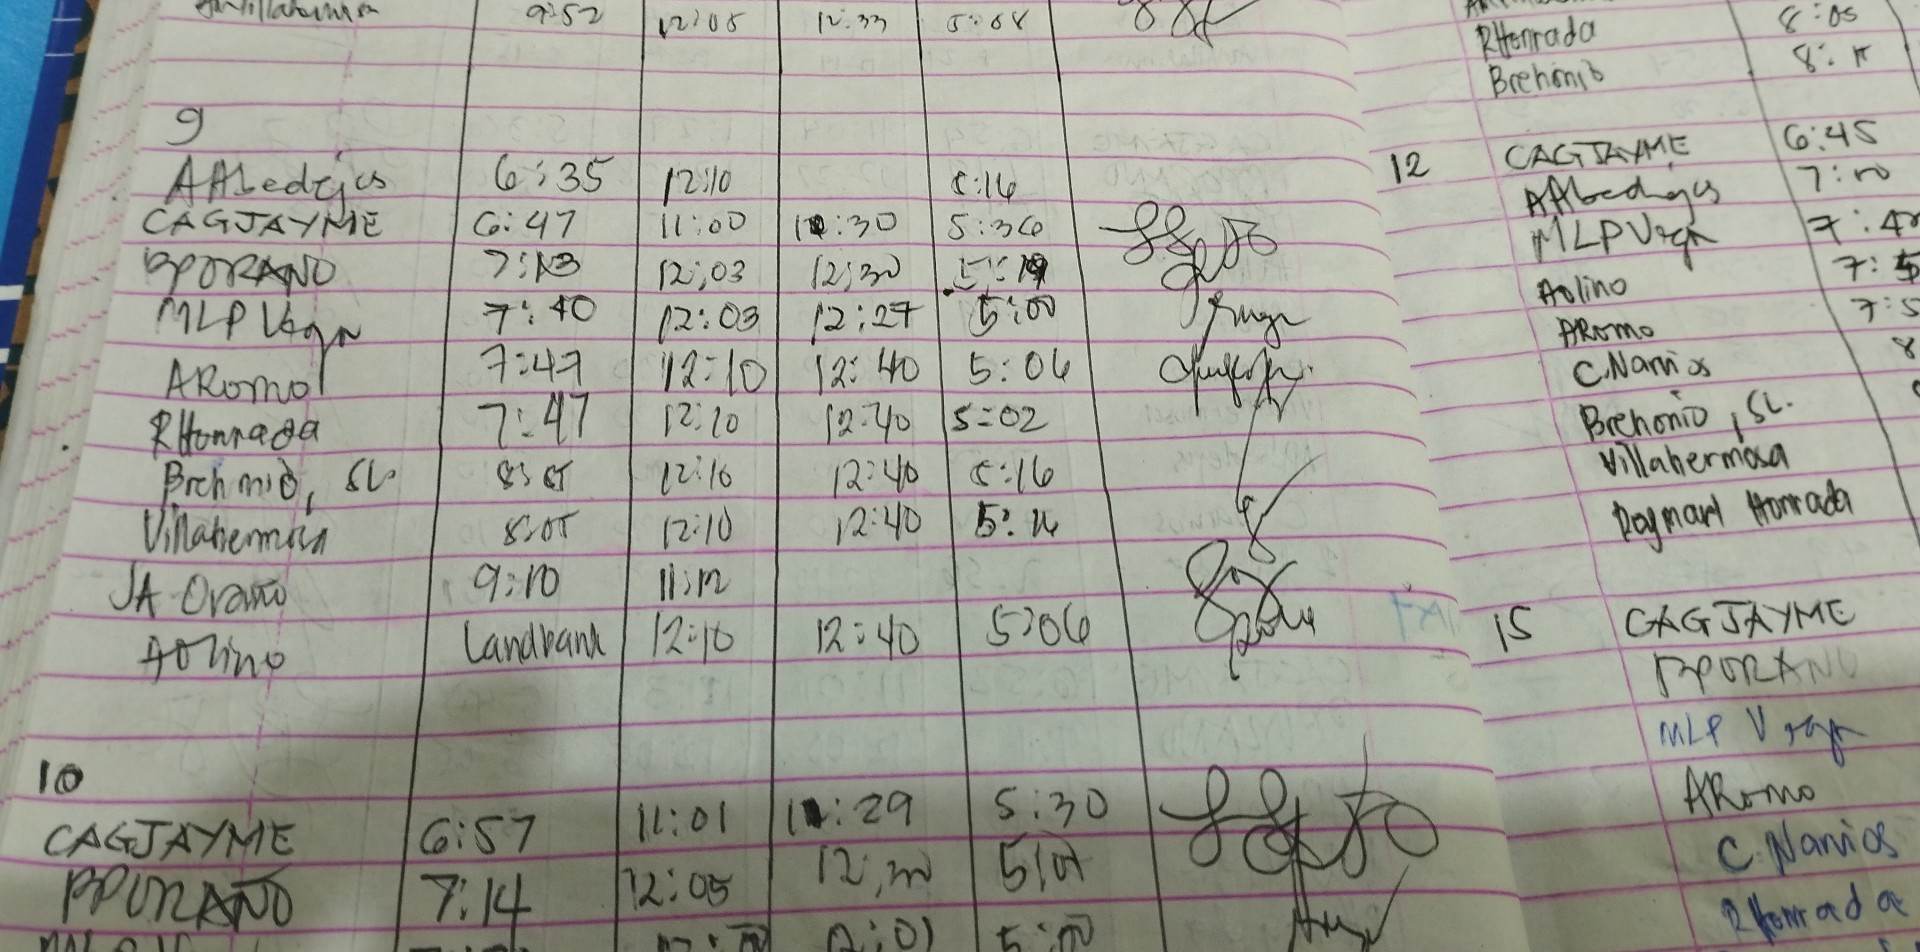 9:52 12:05 12:33 5:08
9
AAbedejos 6:35 12:10 5:16
CAGJAYME 6:47 11:00 11:30 5:36
BPORANO 7:13 12:03 12:30 5:19
MLP Vega 7:40 12:03 12:27 5:00
ARomo 7:47 12:10 12:40 5:06
RHonrada 7:47 12:10 12:40 5:02
Brehonio, SL. 8:05 12:10 12:40 5:16
Villahermosa 8:05 12:10 12:40 5:16
JA Orano 9:10 11:12
AOlino Landbank 12:10 12:40 5:06
10
CAGJAYME 6:57 11:01 11:29 5:30
BPORANO 7:14 12:05 12:30
12:01 5:00
RHonrada 8:05
Brehonio 8:15
12 CAGJAYME 6:45
AAbedejos 7:20
MLP Vega
Aolino
ARomo
C.Narios
Brehonio, SL.
Villahermosa
Raymart Honrada
15 CAGJAYME
BPORANO
MLP Vega
ARomo
C.Narios
RHonrada